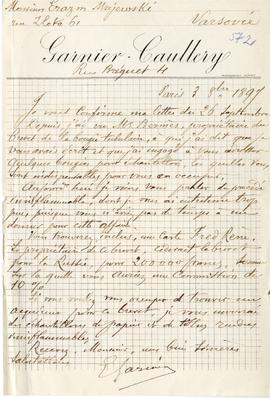 Monsieur Erazm Majewski
rue Zlota 61
Varsovie
Garnier-Caullery
Rue Bréguet 4
Paris 3 8bre 1897
Je vous confirme ma lettre du 26 septembre
Depuis j'ai vu Mr propriétaire du
brevet de la bougie tubulaire, à qui j'ai dit que je
vous avais écrit et que j'ai engagé à vous
quelques bougies pour échantillon, les quelles vous
sont indispensables pour vous en occuper.
Aujourd'hui je viens vous parler du procédé
ininflammable, dont je vous ai entretenu
puis, puisque vous n'avez pas de temps à me
donner pour cette affaire.
Vous trouverez inclus, une carte Fred René,
le propriétaire du brevet, cèderait le brevet
pour la Russie, pour 200000 francs,
sur la quelle vous auriez une Commission de
10 %
Si vous voulez vous occuper de trouver un
acquéreur pour le brevet, je vous enverrai
des échantillons de papier et de rendus
ininflammables.
Recevez, Monsieur, mes bien sincères
salutations